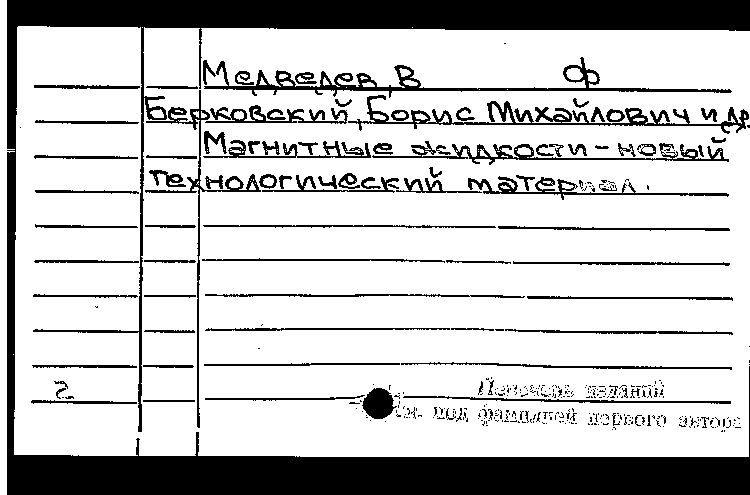 Медведев, В Ф
Берковский, Борис Михайлович и др
Магнитные жидкости - новый
технологический материал.
2 Перечень изданий
см. под фамилией первого автора